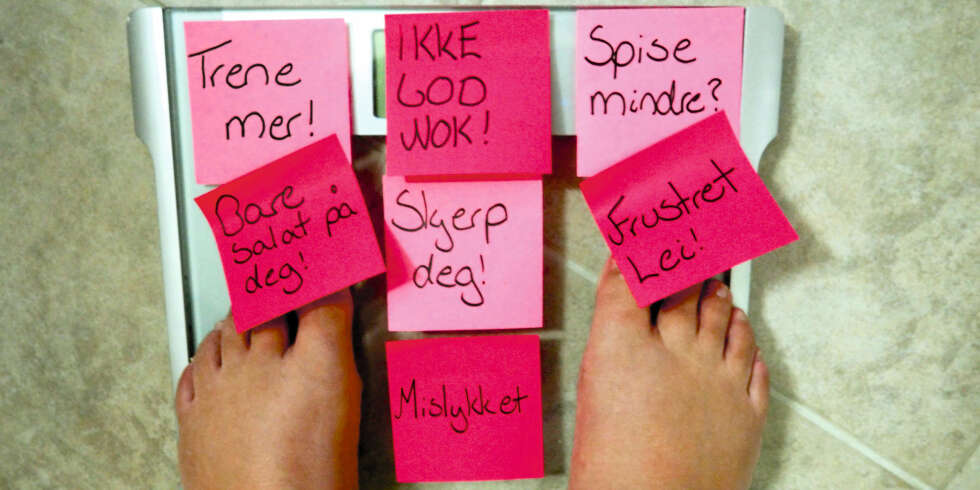 Trene
mer!
IKKE
GOD
NOK!
Spise
mindre?
Bare
salat på
deg!
Skjerp
deg!
Frustret
Lei!
Mislykket